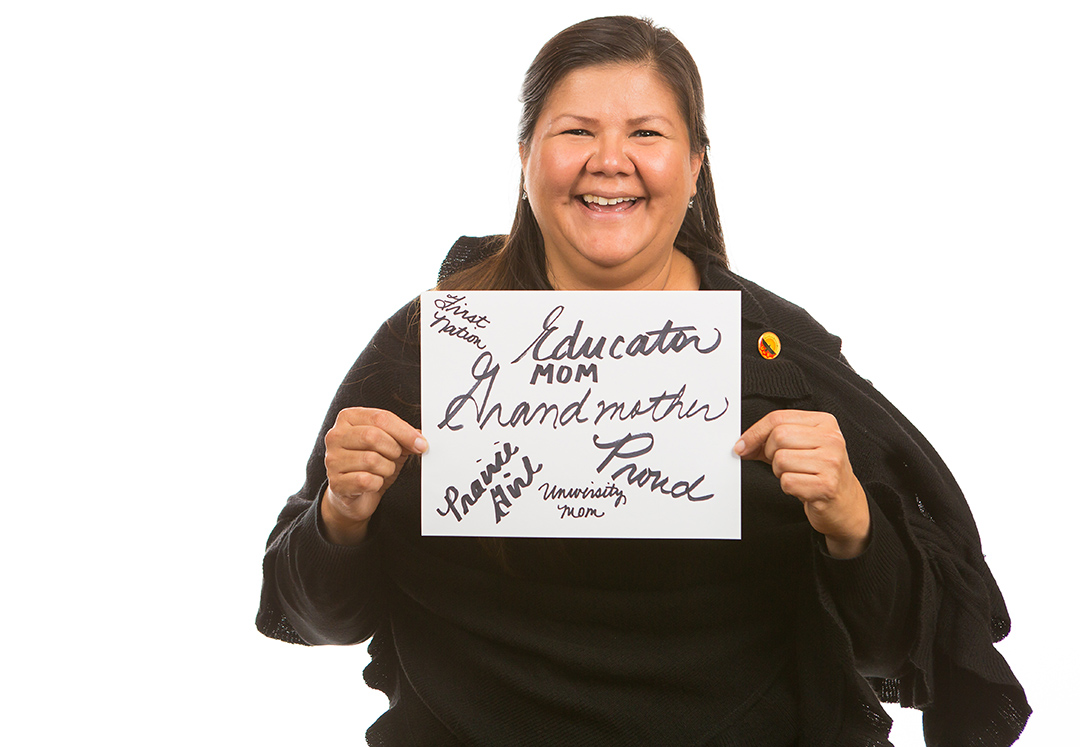 First
Nation
Educator
MOM
Grandmother
Proud
Prairie
Girl
University
Mom